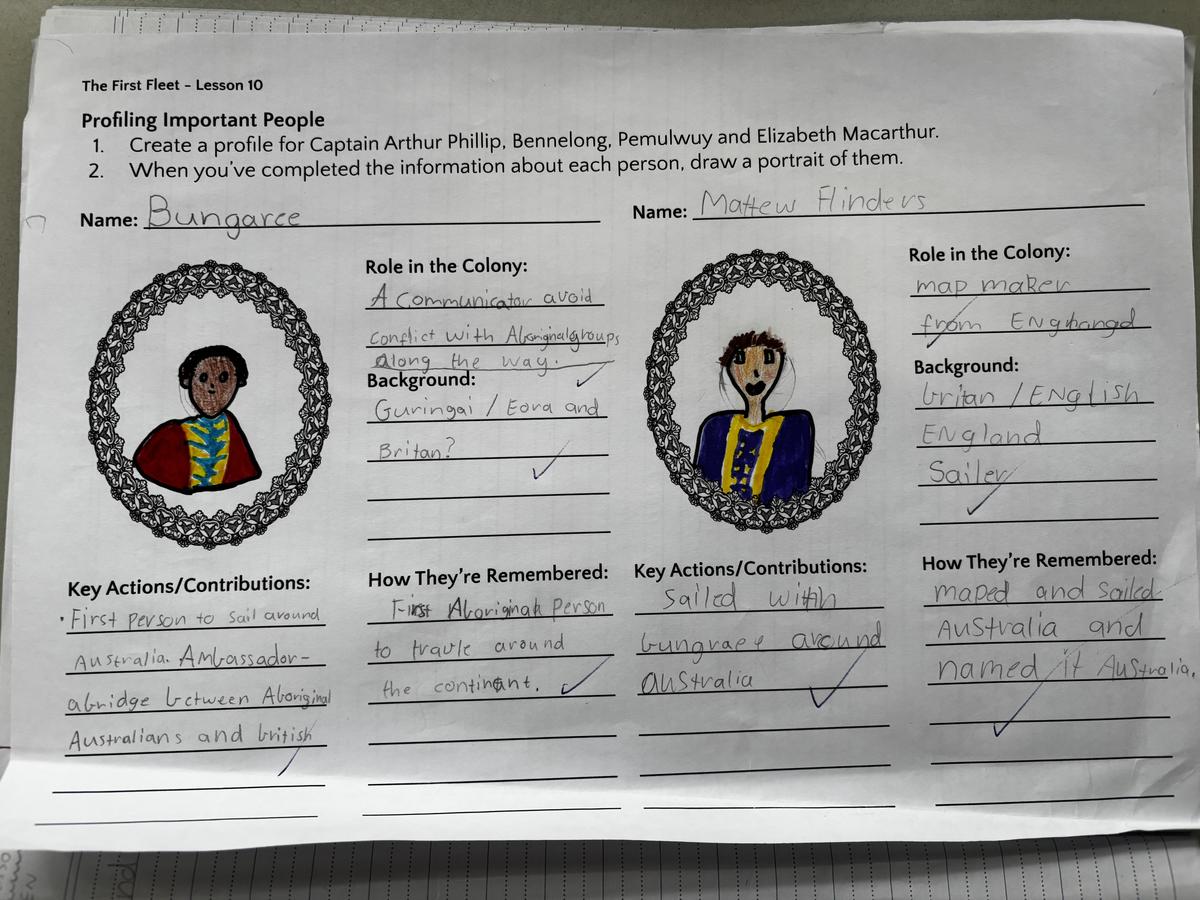 The First Fleet - Lesson 10
Profiling Important People
1. Create a profile for Captain Arthur Phillip, Bennelong, Pemulwuy and Elizabeth Macarthur.
2. When you've completed the information about each person, draw a portrait of them.
Name: Bungaree
Role in the Colony:
A communicator avoid
conflict with Aboriginal groups
along the way.
Background:
Guringai / Eora and
Britan?
Key Actions/Contributions:
• First person to sail around
Australia. Ambassador -
abridge between Aboriginal
Australians and british
How They're Remembered:
First Aboriginal Person
to travle around
the continant.
Name: Mattew Flinders
Role in the Colony:
map maker
from
Background:
britan / ENglish
ENgland
Sailer
Key Actions/Contributions:
Sailed with
bungraee around
australia
How They're Remembered:
maped and sailed
AUStralia and
named it AUStralia.